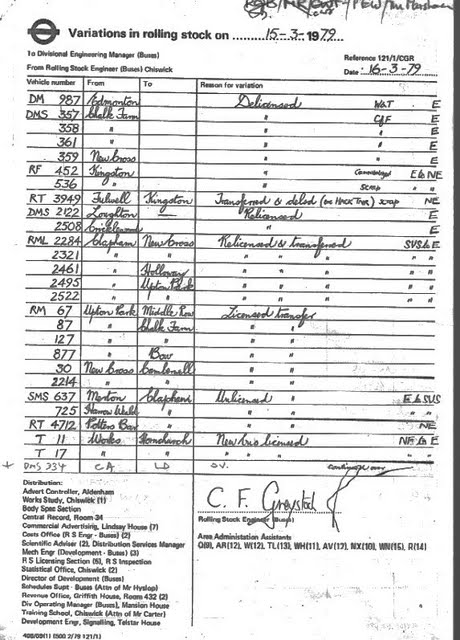 Variations in rolling stock on 15-3-1979
To Divisional Engineering Manager (Buses)
Reference 121/1/CGR
From Rolling Stock Engineer (Buses) Chiswick
Date 16-3-79
Vehicle number From To Reason for variation
DM 987 Edmonton Delicensed W&T E
DMS 357 Chalk Farm " CofF E
358 " " " E
361 " " " E
359 New Cross " " E
RF 452 Kingston " Cannibalized E to NE
536 " " Scrap " "
RT 3949 Fulwell Kingston Transferred & deled (ex Hack Tnr) scrap NE
DMS 2122 Loughton — Relicensed E
2508 Cricklewood " E
RML 2284 Clapham New Cross Relicensed & transferred SUS to E
2321 " " " " " " "
2461 " Holloway " " " " "
2495 " Upton Park " " " " "
2522 " " " " " " "
RM 67 Upton Park Middle Row Licensed transfer
87 " Chalk Farm " "
127 " " " "
877 " Bow " "
30 New Cross Camberwell " "
2214 " " " "
SMS 637 Merton Clapham Unlicensed E to SUS
725 Harrow Weald " " " "
RT 4712 Potters Bar " " NE
T 11 Works Hornchurch New bus licensed NE to E
T 17 " " " " "
+ DMS 234 CA LD O.V. continued over
Distribution:
Advert Controller, Aldenham
Works Study, Chiswick (1)
Body Spec Section
Central Record, Room 34
Commercial Advertising, Lindsay House (7)
Costs Office (R S Engr - Buses) (2)
Scientific Adviser (2), Distribution Services Manager
Mech Engr (Development - Buses) (3)
R S Licensing Section (5), R S Inspection
Statistical Office, Chiswick (2)
Director of Development (Buses)
Schedules Supt - Buses (Attn of Mr Hyslop)
Revenue Office, Griffith House, Room 432 (2)
Div Operating Manager (Buses), Mansion House
Training School, Chiswick (Attn of Mr Carter)
Development Engr, Signalling, Telstar House
C. F. Greystock
Rolling Stock Engineer (Buses)
Area Administration Assistants
Q(9), AR(12), W(12), TL(13), WH(11), AV(17), NX(10), WN(15), R(14)